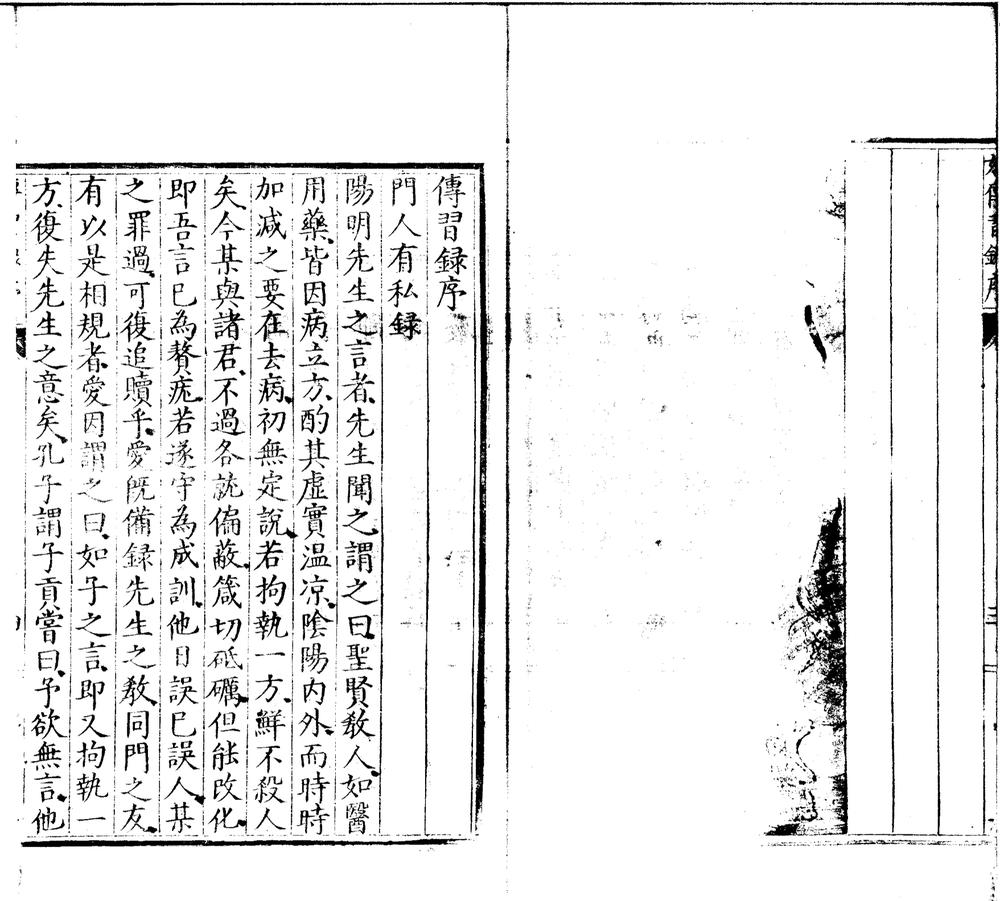 傳習録序
門人有私録
陽明先生之言者、先生聞之、謂之曰、聖賢教人、如醫
用藥、皆因病立方、酌其虛實温凉、陰陽内外、而時時
加减之、要在去病、初無定說、若拘執一方、鮮不殺人
矣、今某與諸君、不過各就偏蔽、箴切砥礪、但能改化、
即吾言已為贅疣、若遂守為成訓、他日誤已誤人、某
之罪過、可復追贖乎、愛既備録先生之教、同門之友、
有以是相規者、愛因謂之曰、如子之言、即又拘執一
方、復失先生之意矣、孔子謂子貢、嘗曰、予欲無言、他